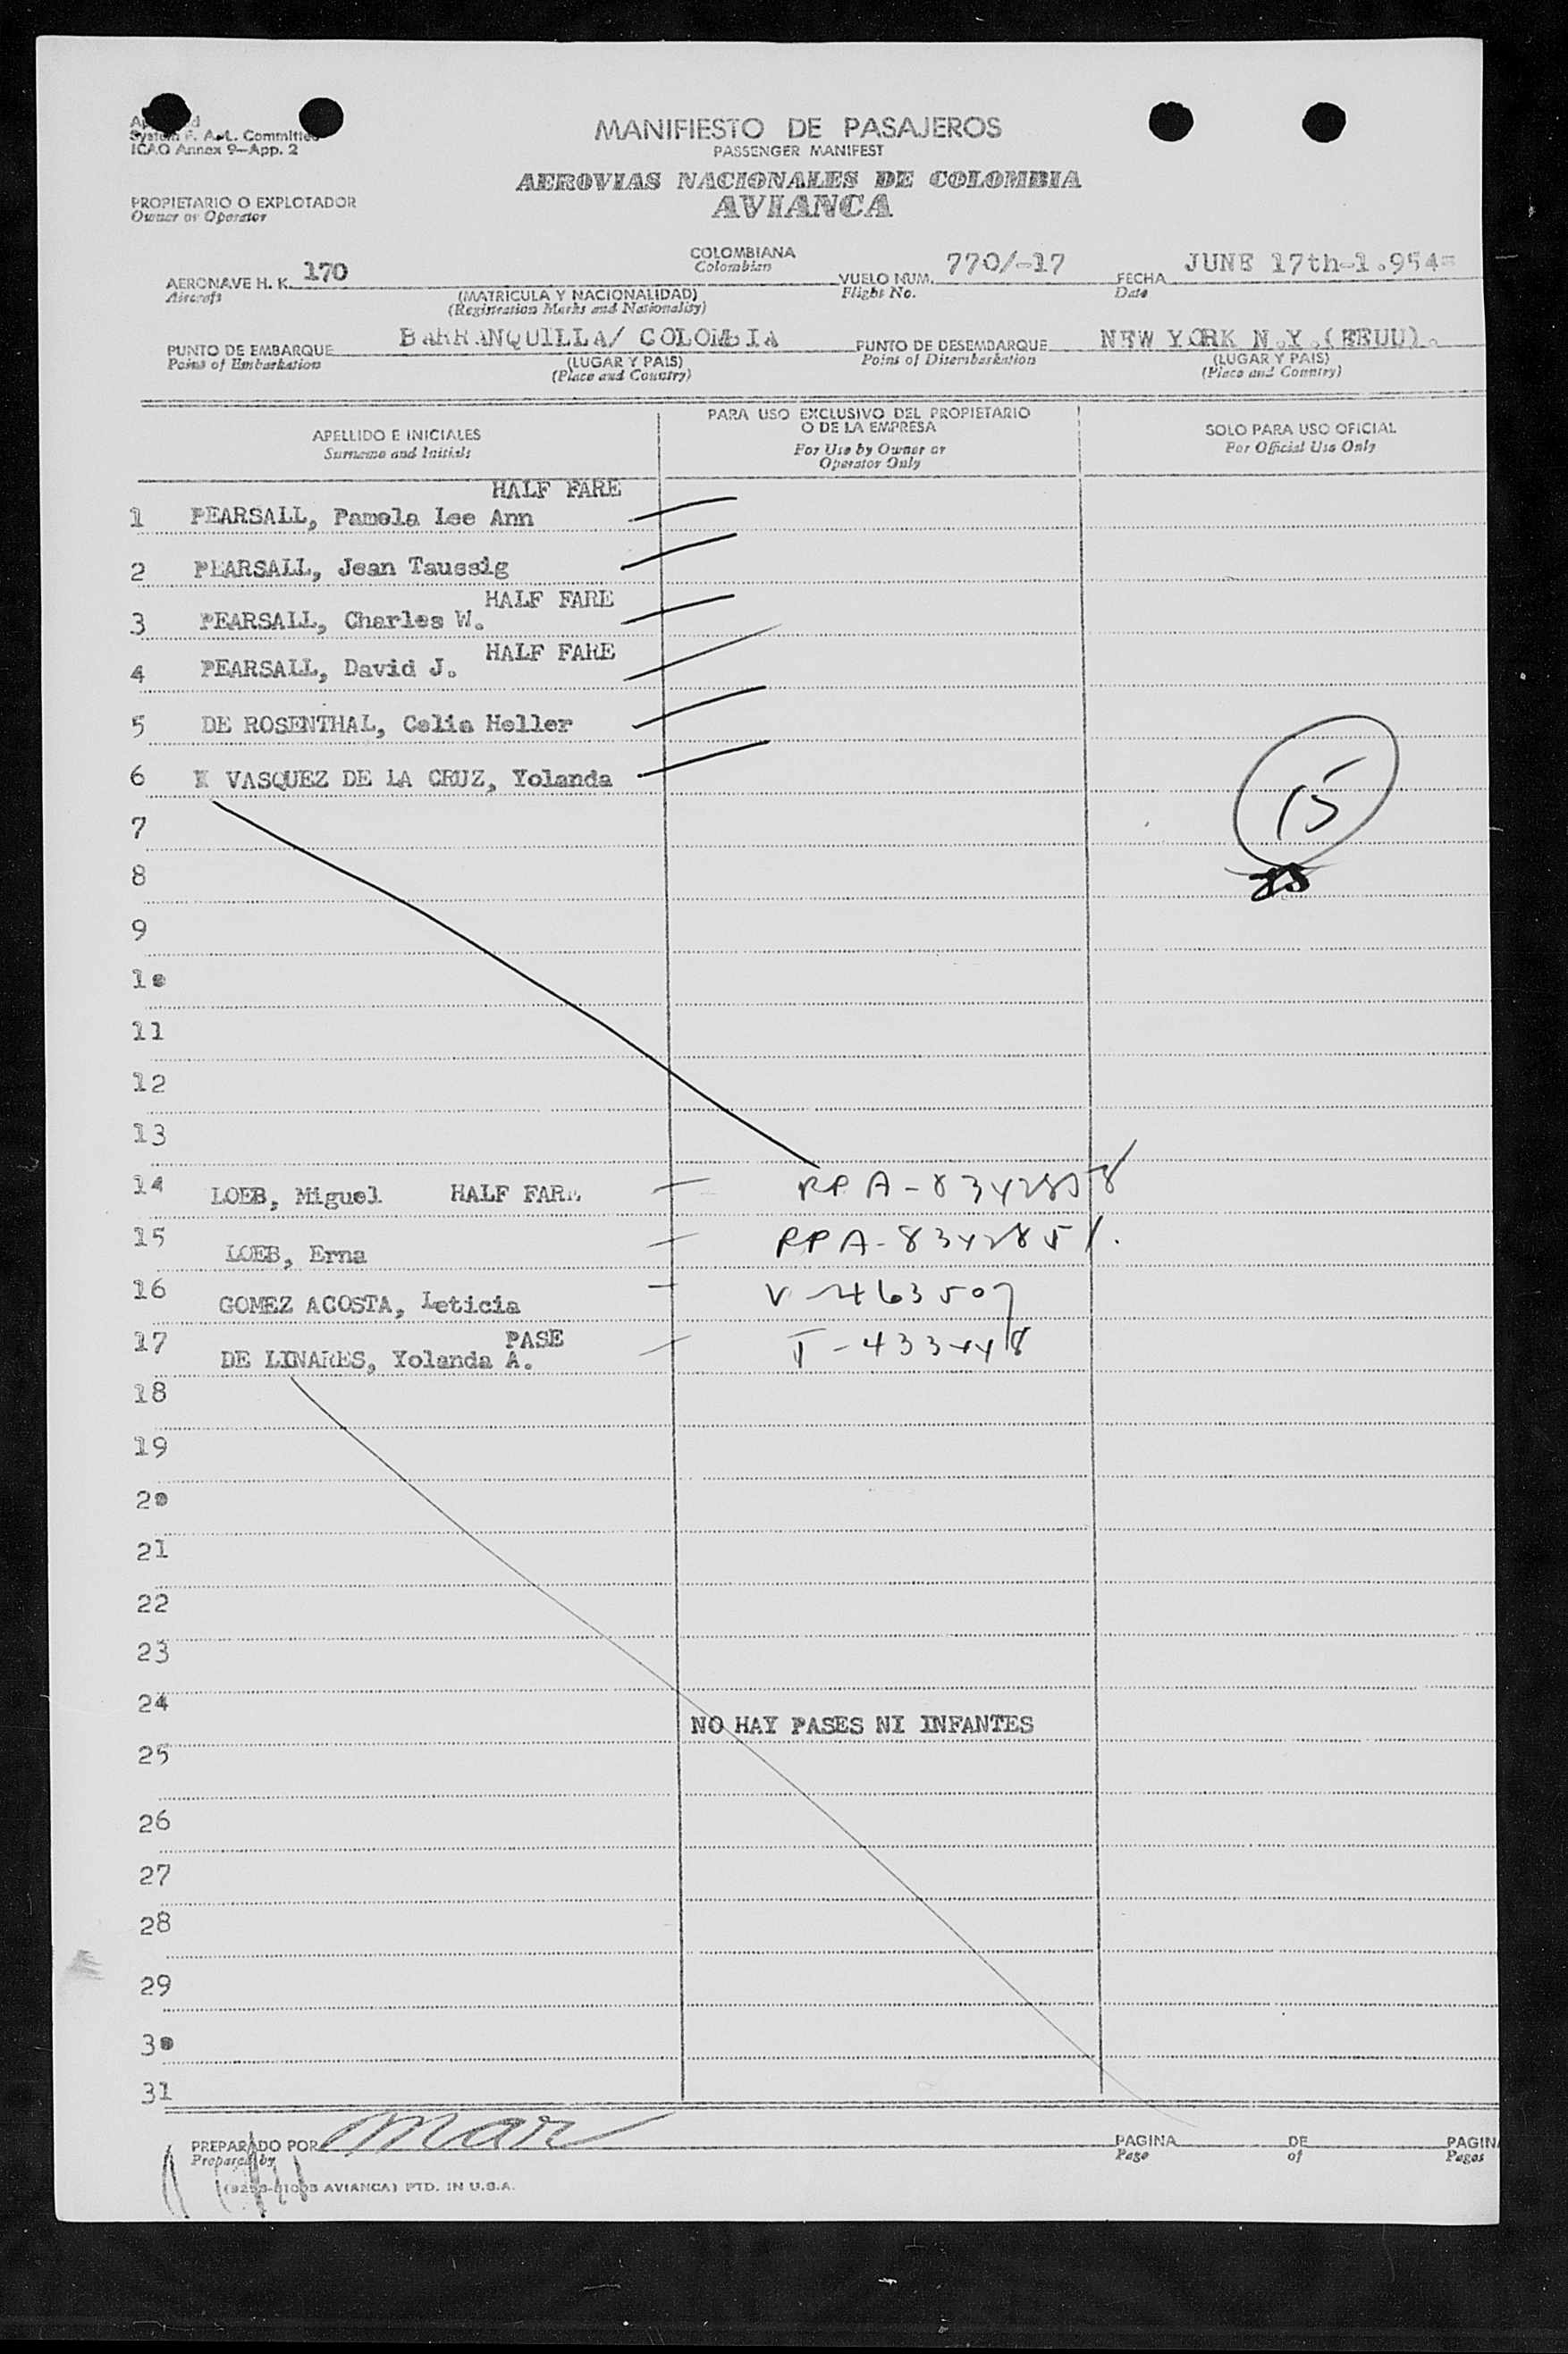 System F. A. L. Committee
ICAO Annex 9—App. 2
MANIFIESTO DE PASAJEROS
PASSENGER MANIFEST
AEROVIAS NACIONALES DE COLOMBIA
AVIANCA
PROPIETARIO O EXPLOTADOR
Owner or Operator
AERONAVE H. K. 170
Aircraft
COLOMBIANA
Colombian
(MATRICULA Y NACIONALIDAD)
(Registration Marks and Nationality)
VUELO NUM. 770/-17
Flight No.
FECHA JUNE 17th-1.954=
Date
PUNTO DE EMBARQUE BARRANQUILLA/ COLOMBIA
Point of Embarkation
(LUGAR Y PAIS)
(Place and Country)
PUNTO DE DESEMBARQUE NEW YORK N.Y.(EEUU).
Point of Disembarkation
(LUGAR Y PAIS)
(Place and Country)
APELLIDO E INICIALES
Surname and Initials
PARA USO EXCLUSIVO DEL PROPIETARIO
O DE LA EMPRESA
For Use by Owner or
Operator Only
SOLO PARA USO OFICIAL
For Official Use Only
HALF FARE
1 PEARSALL, Pamela Lee Ann
2 PEARSALL, Jean Taussig
HALF FARE
3 PEARSALL, Charles W.
HALF FARE
4 PEARSALL, David J.
5 DE ROSENTHAL, Celia Heller
6 X VASQUEZ DE LA CRUZ, Yolanda
15
7
8
9
10
11
12
13
14 LOEB, Miguel HALF FARE
15 LOEB, Erna RPA-8342851.
16 GOMEZ ACOSTA, Leticia V-463507
PASE
17 DE LINARES, Yolanda A.
18
19
20
21
22
23
24
NO HAY PASES NI INFANTES
25
26
27
28
29
30
31
PREPARADO POR Mar
Prepared by
PAGINA DE PAGINA
Page of Pages
AVIANCA) PTD. IN U.S.A.